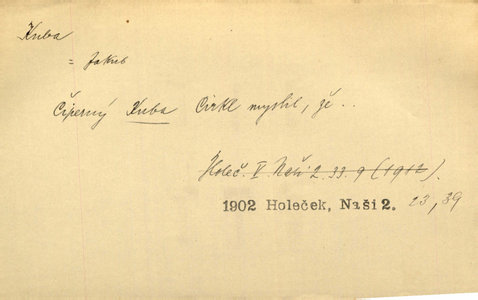 Kuba
= Jakub
Čiperný Kuba Cirkl myslil, že . .
Holeč. V. Naši 2. 33. 9 (1912).
1902 Holeček, Naši 2. 23, 39